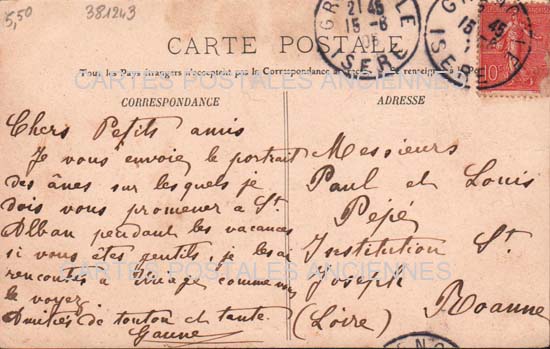 5,50
381243
GRENOBLE
21 45
15-6
ISERE
GRENOBLE
45
15
ISERE
10
CARTE POSTALE
Tous les Pays étrangers n'acceptent pas la Correspondance au Recto. (Se renseigner à la Poste)
CARTES POSTALES ANCIENNES
CORRESPONDANCE
Chers Petits amis
Je vous envoie le portrait
des ânes sur lesquels je
dois vous promener a St.
Alban pendant les vacances
si vous êtes gentils, je les ai
rencontrés à Uriage comme vous
le voyez
Amitiés de tonton et tante
ADRESSE
Messieurs
Paul et Louis
Institution St.
Joseph
Roanne
(Loire)
CARTES POSTALES ANCIENNES